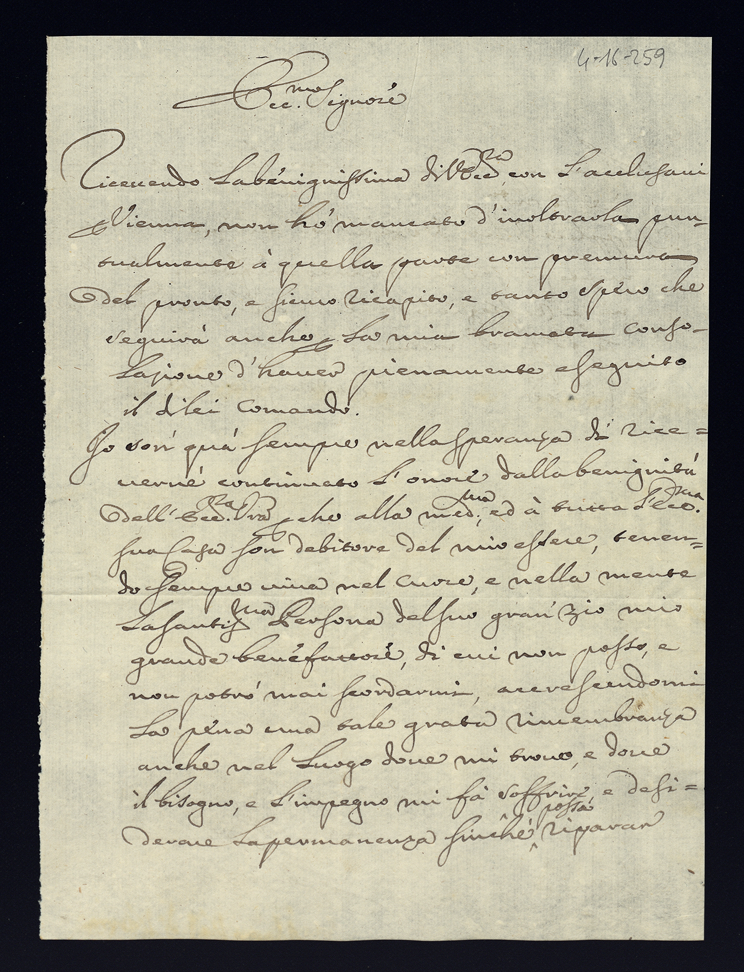 4-16-259
Ecc.mo Signore
Ricevendo la benignissima di V. Ecc.za con l'acclusavi
p Vienna, non hò mancato d'inoltrarla pun-
tualmente à quella parte con premura
del pronto, e sicuro ricapito, e tanto spero che
seguirà anche p la mia bramata conso-
lazione d'haver pienamente eseguito
il di lei comando.
Io son quà sempre nella speranza di rice=
verne continuato l'onore dalla benignità
dell'Ecc.za Vra p che alla med.ma, ed à tutta l'Ecc.ma
sua Casa son debitore del mio essere, tenen=
do sempre viva nel cuore, e nella mente
la santiss.ma Persona del suo gran Zio mio
grande benefattore, di cui non posso, e
non potrò mai scordarmi, accrescendomi
la pena una tale grata rimembranza
anche nel luogo dove mi trovo, e dove
il bisogno, e l'impegno mi fà soffrire, e desi=
derare la permanenza finchè possa riparar